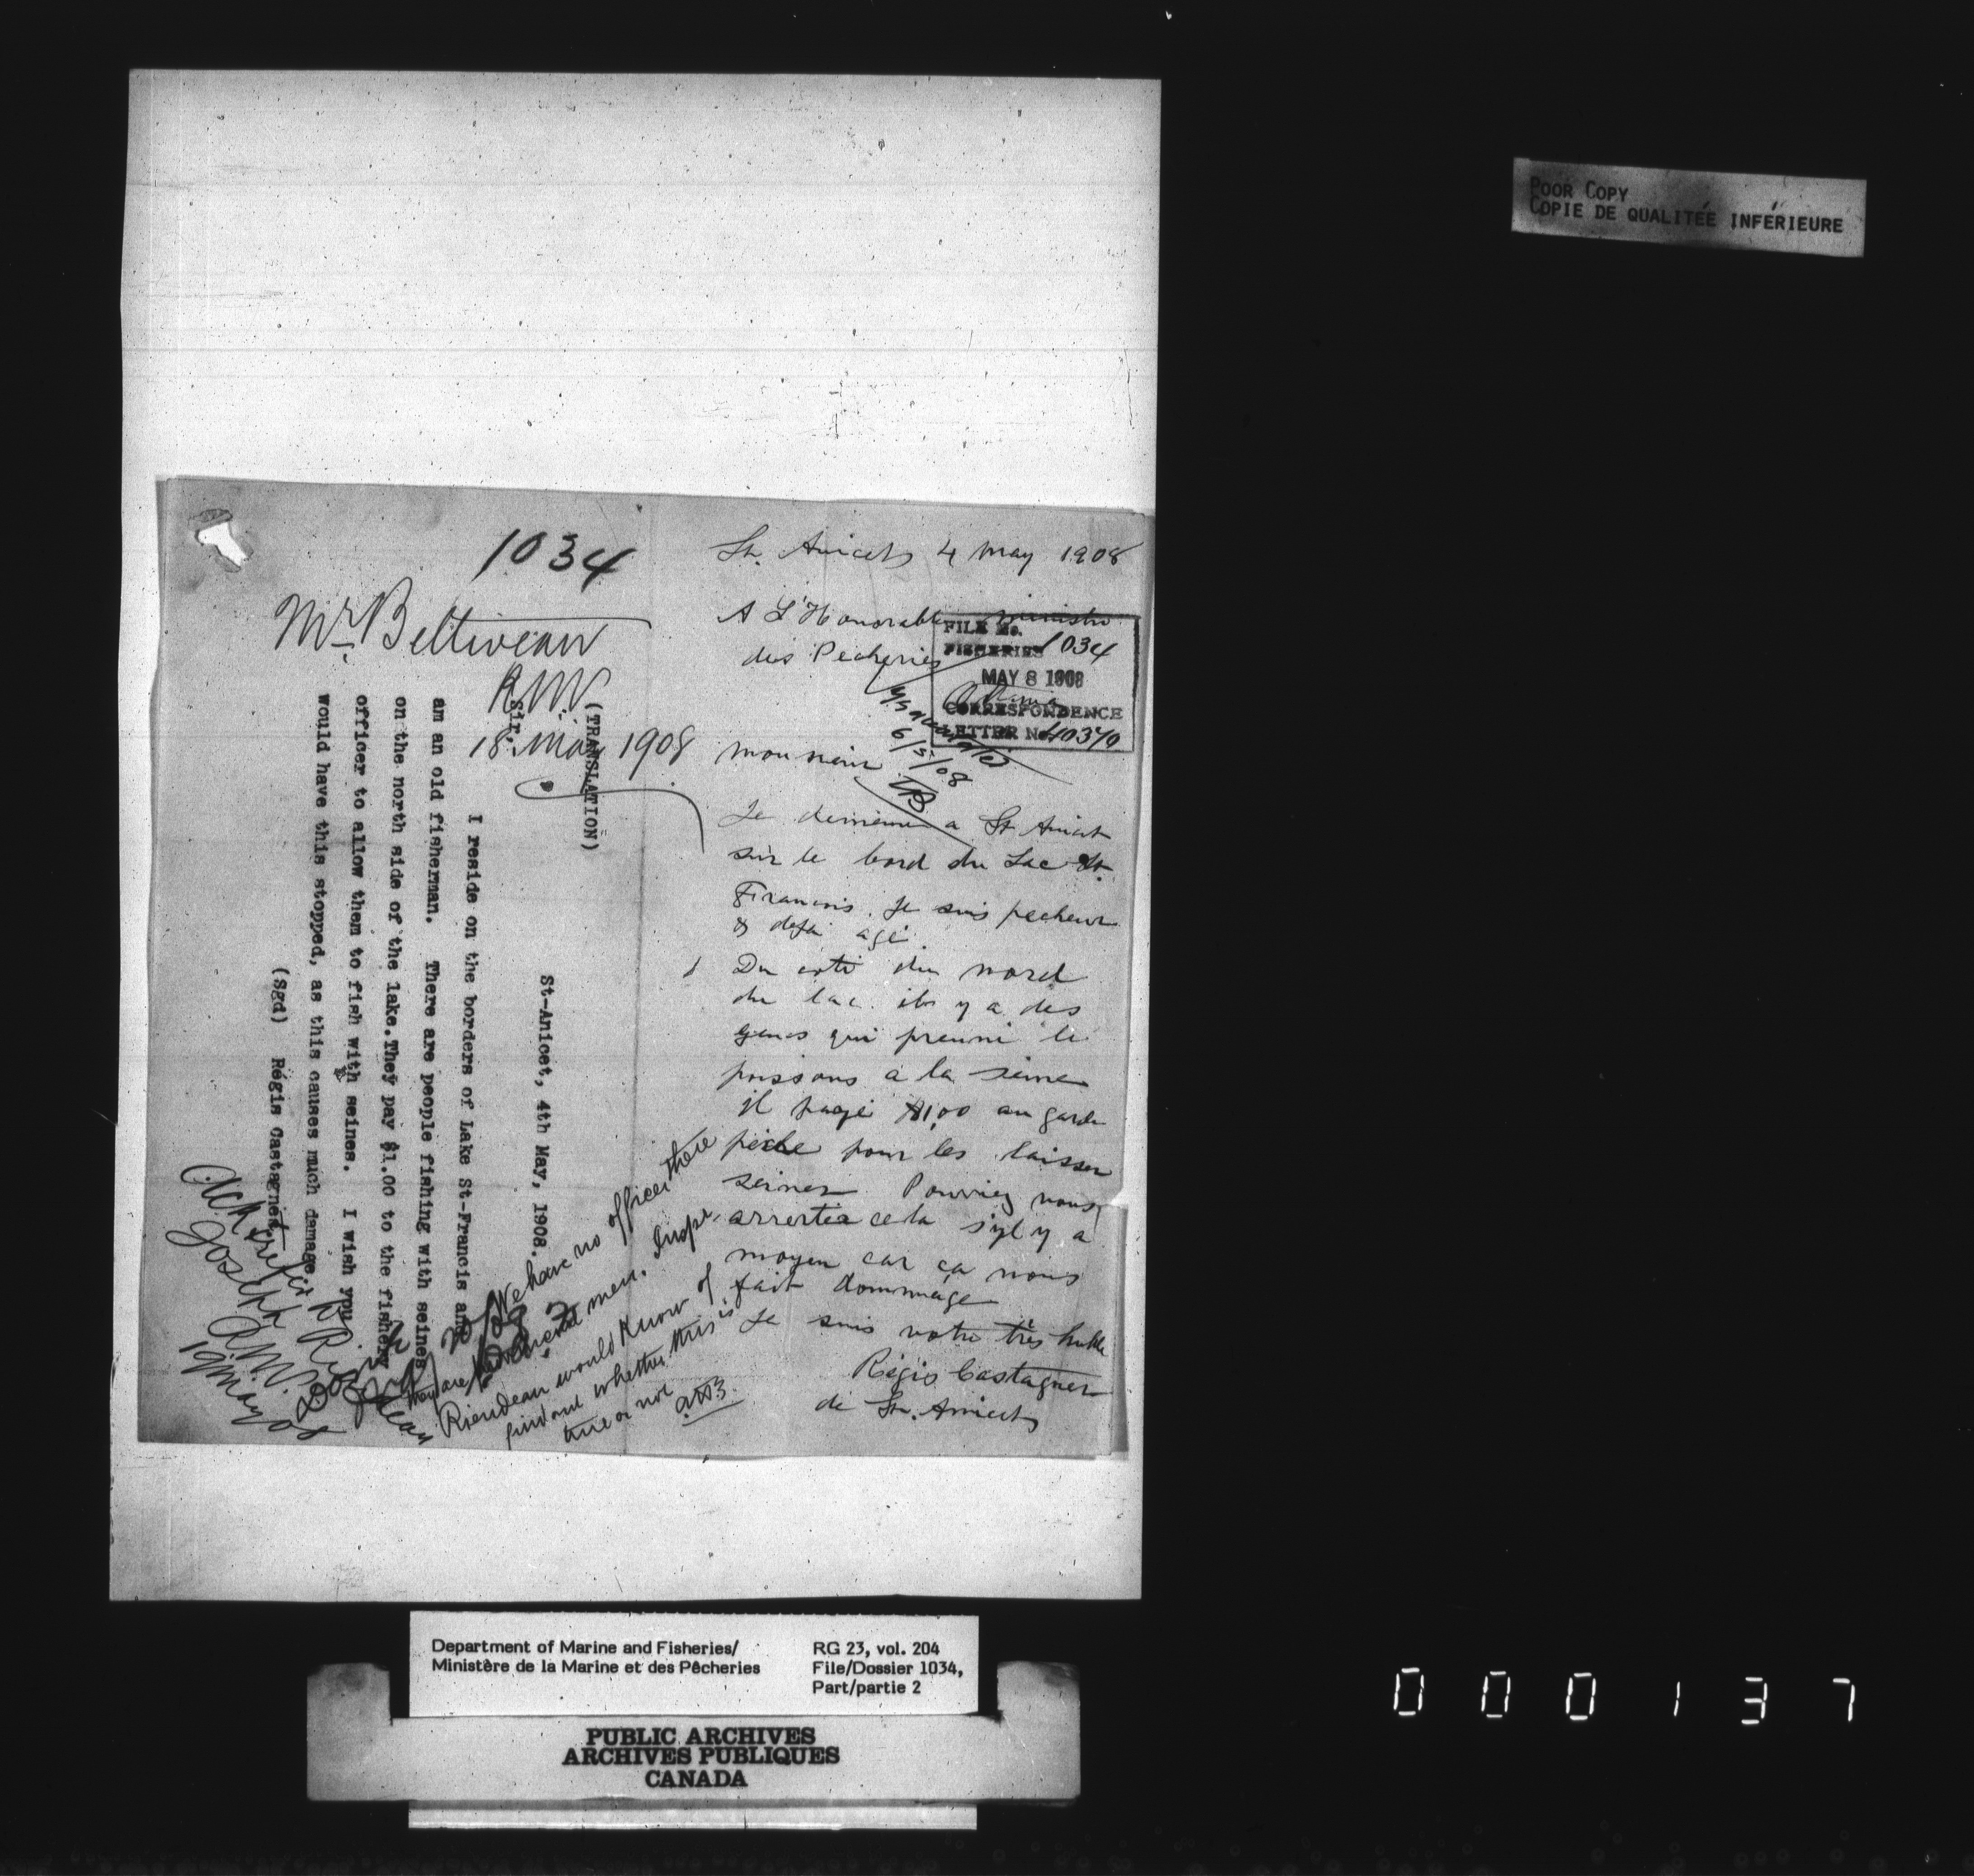 POOR COPY
COPIE DE QUALITÉE INFÉRIEURE
1034
Mr. Beltiveau
R.W.
18. May 1908
St. Anicets 4 May 1908
A L'Honorable Ministre
des Pecheries
FILE No.
FISHERIES 1034
MAY 8 1908
CORRESPONDENCE
LETTER No.
6/5/08
monsieur
Je demeure a St Anicet
sur le bord du Lac St.
Francois. Je suis pecheur
& deja agé
Du coté du nord
du lac. ils y a des
gens qui prenne le
poissons a la seine
il paye $1,00 au garde
pêche pour les laisser
seiner Pourriez vous
arrertéz cela s'yl y a
moyen car ça nous
fait dommage
Je suis votre très humble
Régis Castagner
de St. Anicets
(TRANSLATION)
St-Anicet, 4th May, 1908.
Sir,
I reside on the borders of Lake St-Francis and
am an old fisherman. There are people fishing with seines
on the north side of the lake. They pay $1.00 to the fishery
officer to allow them to fish with seines. I wish you
would have this stopped, as this causes much damage
(Sgd) Régis Castagner
We have no officer there
they are men. Inspr.
Riendeau would know of
find out whether this is
true or not
Ack
Joseph Riendeau
R.W.
19 May 08
Department of Marine and Fisheries/
Ministère de la Marine et des Pêcheries
RG 23, vol. 204
File/Dossier 1034,
Part/partie 2
PUBLIC ARCHIVES
ARCHIVES PUBLIQUES
CANADA
000137